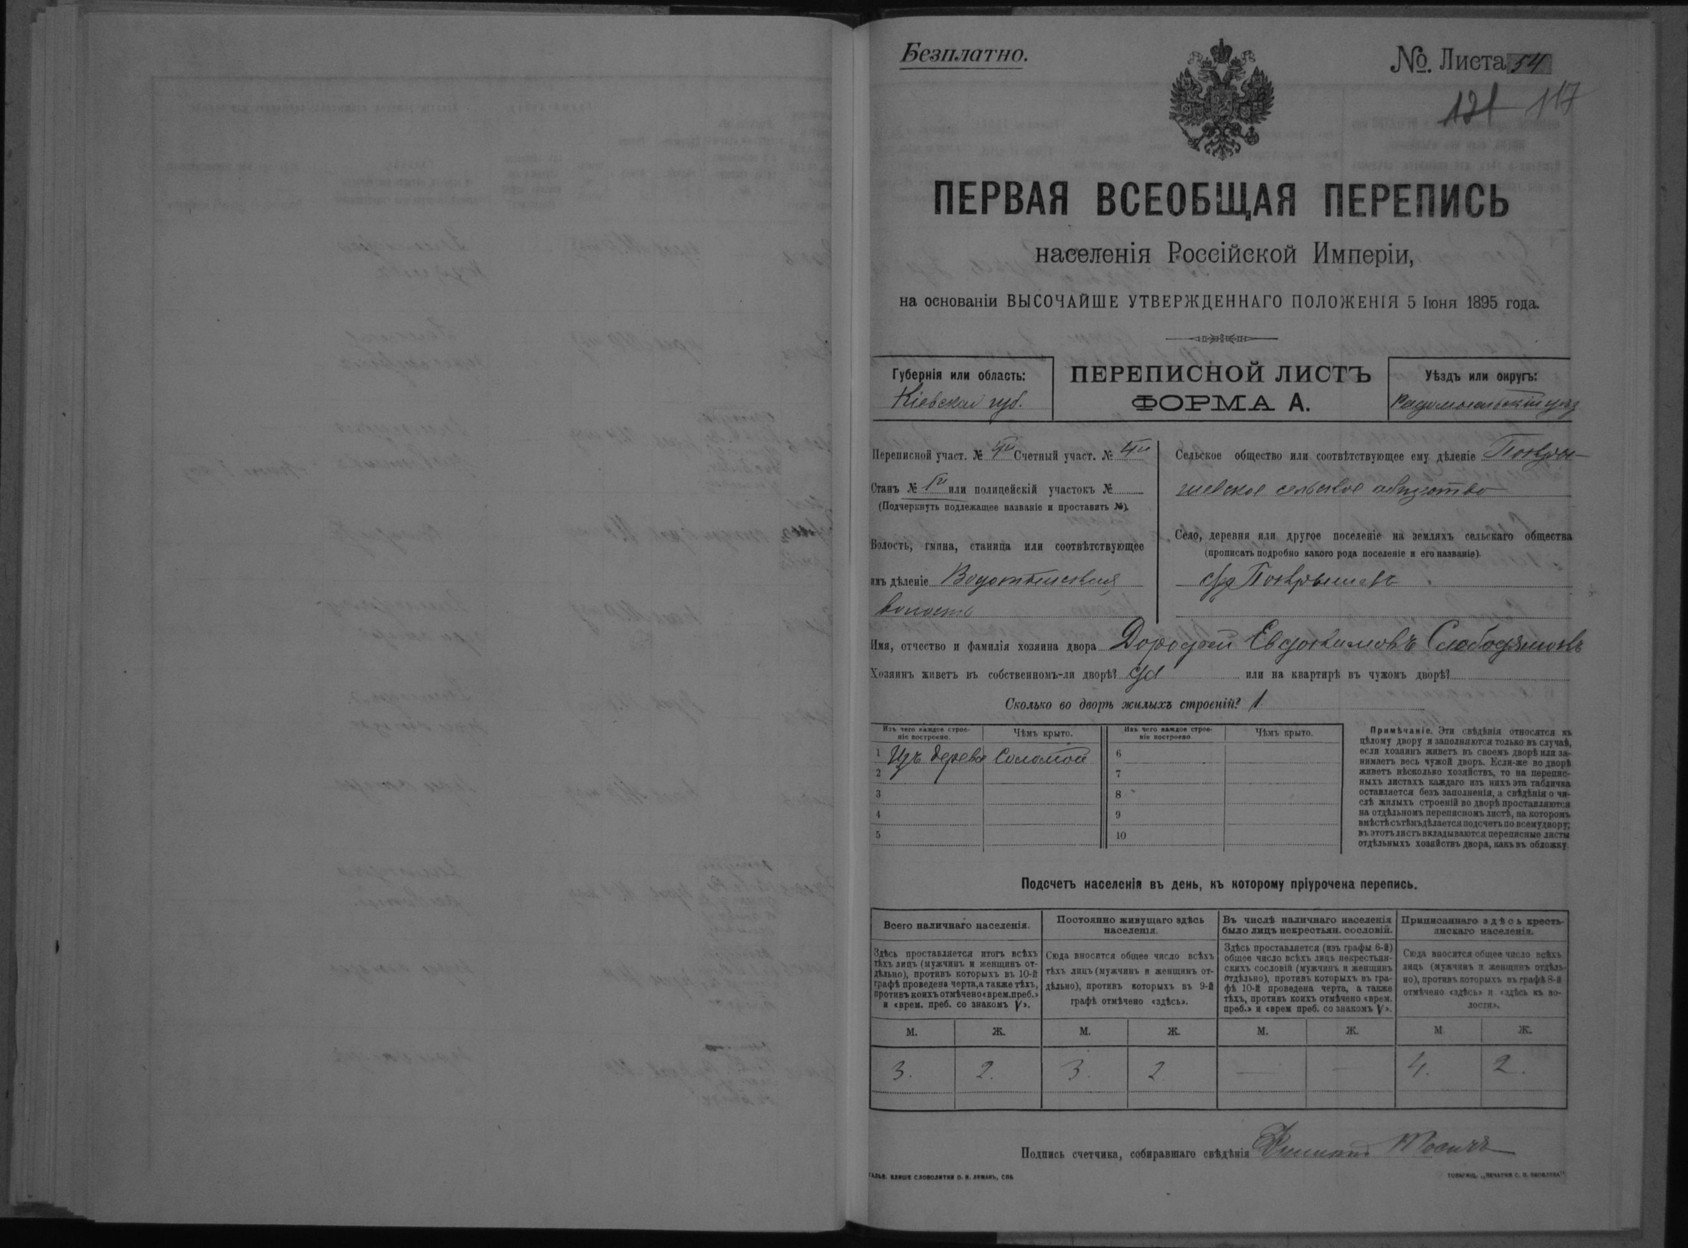 Безплатно.
№. Листа 54
121 117
ПЕРВАЯ ВСЕОБЩАЯ ПЕРЕПИСЬ
населенія Россійской Имперіи,
на основаніи ВЫСОЧАЙШЕ УТВЕРЖДЕННАГО ПОЛОЖЕНІЯ 5 Іюня 1895 года.
Губернія или область:
Кіевская губ.
ПЕРЕПИСНОЙ ЛИСТЪ
ФОРМА А.
Уѣздъ или округъ:
Радомысльскій уѣзд
Переписной участ. № 4й Счетный участ. № 4й
Станъ № 1й или полицейскій участокъ №
(Подчеркнуть подлежащее названіе и проставить №).
Волость, гмина, станица или соотвѣтствующее
имъ дѣленіе Водотыйская
волость
Сельское общество или соотвѣтствующее ему дѣленіе Покры-
шевское сельское общество
Село, деревня или другое поселеніе на земляхъ сельскаго общества
(прописать подробно какого рода поселеніе и его названіе).
Покрышевъ
Имя, отчество и фамилія хозяина двора Дорофей Евдокимовъ Слободянюкъ
Хозяинъ живетъ въ собственномъ-ли дворѣ? да или на квартирѣ въ чужомъ дворѣ?
Сколько во дворѣ жилыхъ строеній? 1
Изъ чего каждое строе-
ніе построено.
Чѣмъ крыто.
Изъ чего каждое строе-
ніе построено
Чѣмъ крыто.
1 Изъ дерева Соломой 6
2 7
3 8
4 9
5 10
Примѣчаніе. Эти свѣдѣнія относятся къ
цѣлому двору и заполняются только въ случаѣ,
если хозяинъ живетъ въ своемъ дворѣ или за-
нимаетъ весь чужой дворъ. Если-же во дворѣ
живетъ нѣсколько хозяйствъ, то на перепис-
ныхъ листахъ каждаго изъ нихъ эта табличка
оставляется безъ заполненія, а свѣдѣнія о чи-
слѣ жилыхъ строеній во дворѣ проставляются
на отдѣльномъ переписномъ листѣ, на которомъ
вмѣстѣ съ тѣмъ дѣлается подсчетъ по всему двору;
въ этотъ листъ вкладываются переписные листы
отдѣльныхъ хозяйствъ двора, какъ въ обложку.
Подсчетъ населенія въ день, къ которому пріурочена перепись.
Всего наличнаго населенія.
Здѣсь проставляется итогъ всѣхъ
тѣхъ лицъ (мужчинъ и женщинъ от-
дѣльно), противъ которыхъ въ 10-й
графѣ проведена черта, а также тѣхъ,
противъ коихъ отмѣчено «врем. преб.»
и «врем. преб. со знакомъ V».
Постоянно живущаго здѣсь
населенія.
Сюда вносится общее число всѣхъ
тѣхъ лицъ (мужчинъ и женщинъ от-
дѣльно), противъ которыхъ въ 9-й
графѣ отмѣчено «здѣсь».
Въ числѣ наличнаго населенія
было лицъ некрестьян. сословій.
Здѣсь проставляется (изъ графы 6-й)
общее число всѣхъ лицъ некрестьян-
скихъ сословій (мужчинъ и женщинъ
отдѣльно), противъ которыхъ въ гра-
фѣ 10-й проведена черта, а также
тѣхъ, противъ коихъ отмѣчено «врем.
преб.» и «врем преб. со знакомъ V».
Приписаннаго здѣсь кресть-
янскаго населенія.
Сюда вносится общее число всѣхъ
лицъ (мужчинъ и женщинъ отдѣль-
но), противъ которыхъ въ графѣ 8-й
отмѣчено «здѣсь» и «здѣсь въ во-
лости».
М. Ж. М. Ж. М. Ж. М Ж.
3. 2. 3. 2 — — 4. 2.
Подпись счетчика, собиравшаго свѣдѣнія